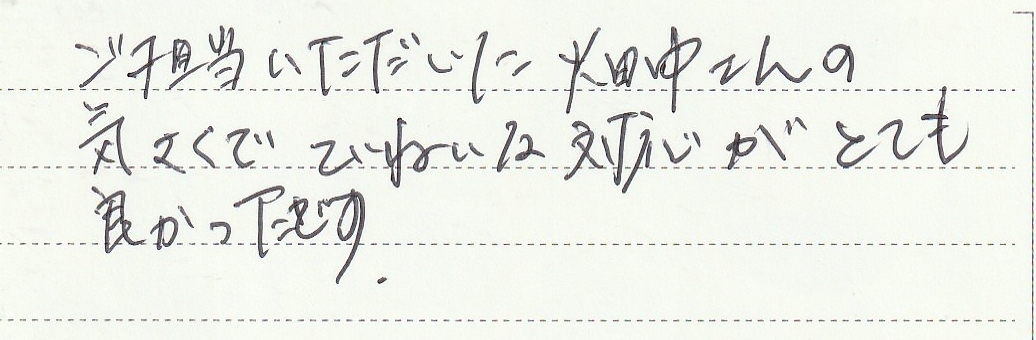 ご担当いただいた畑中さんの
気さくでていねいな対応がとても
良かったです.